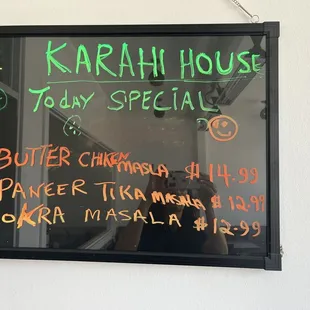 KARAHI HOUSE
Today SPECIAL
BUTTER CHIKEN MASLA $14.99
PANEER TIKA MASALA $12.99
OKRA MASALA $12.99